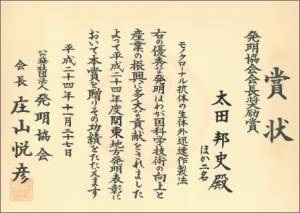 賞状
発明協会会長奨励賞
モノクローナル抗体の生体外迅速作製法
太田邦史殿
ほか二名
右の優秀な発明はわが国科学技術の向上と
産業の振興に多大な貢献をされました
よって平成二十四年度関東地方発明表彰に
おいて本賞を贈りその功績をたたえます
平成二十四年十一月二十七日
公益社団法人発明協会
会長 庄山悦彦